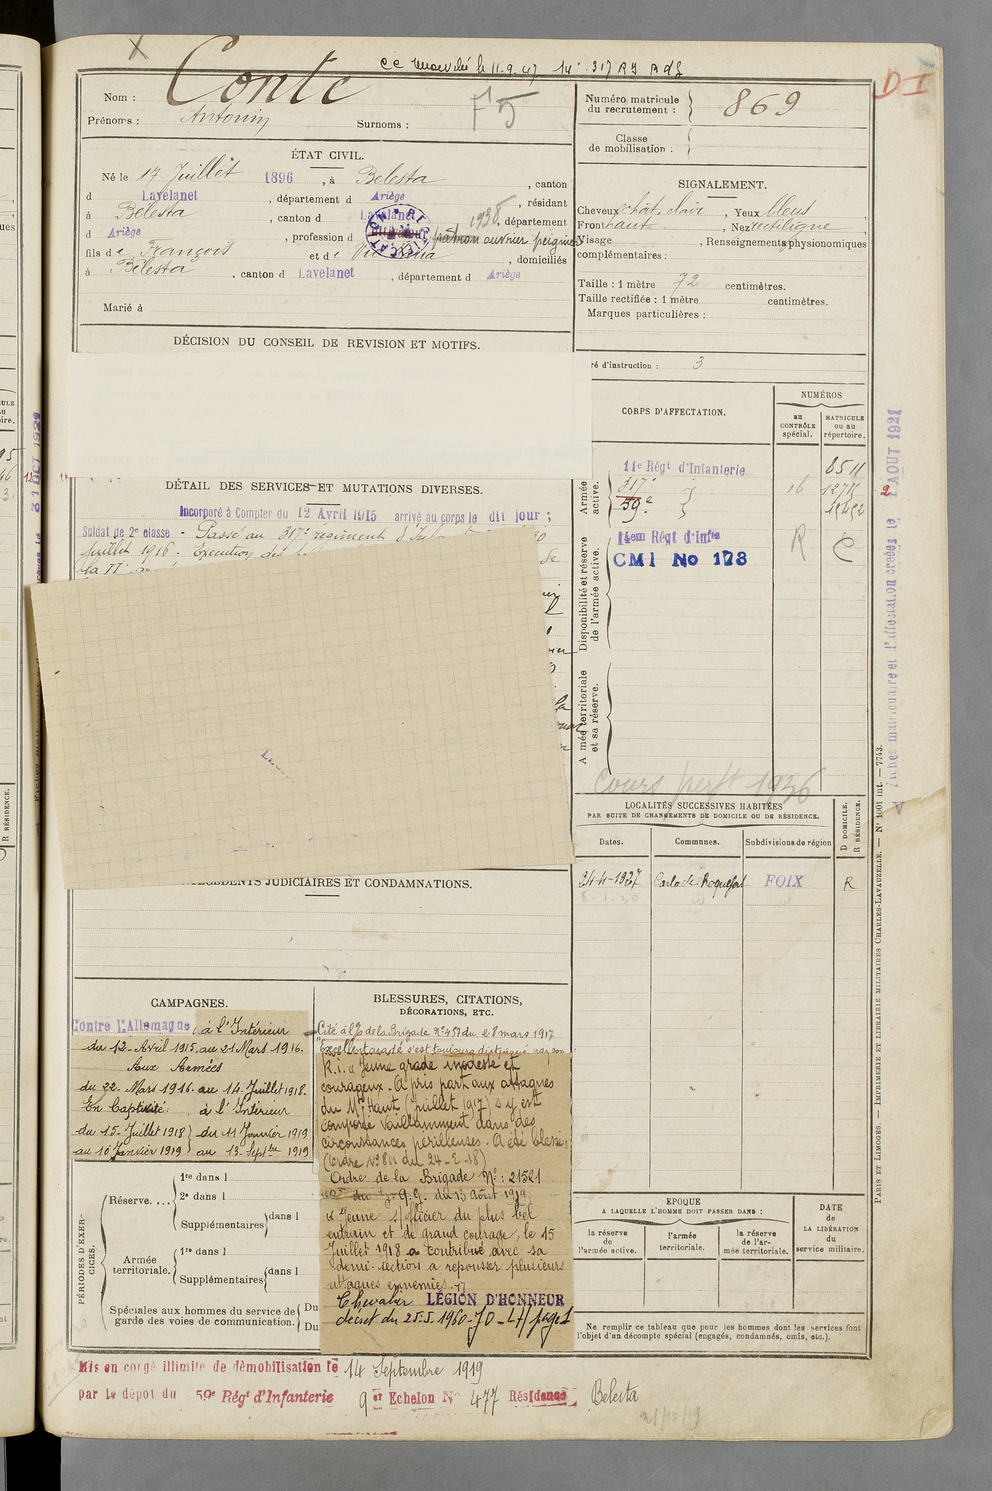 X
Conte
Nom :
Prénoms :
Antonin
Surnoms :
F5
Numéro matricule
du recrutement :
869
Classe
de mobilisation :
DI
ÉTAT CIVIL.
Né le 17 Juillet 1896, à Belesta, canton
d Lavelanet, département d Ariège, résidant
à Bélesta, canton d Lavelanet 1938, département
d Ariège, profession d patron ouvrier peigneur
fils de François et de, domiciliés
à Bélesta, canton d Lavelanet, département d Ariège
Marié à
SIGNALEMENT.
Cheveux chât. clair, Yeux bleus
Front haut, Nez rectiligne
Visage, Renseignements physionomiques
complémentaires :
Taille : 1 mètre 72 centimètres.
Taille rectifiée : 1 mètre centimètres.
Marques particulières :
DÉCISION DU CONSEIL DE REVISION ET MOTIFS.
ré d'instruction : 3
CORPS D'AFFECTATION.
NUMÉROS
au
CONTRÔLE
spécial.
MATRICULE
ou au
répertoire.
Armée
active.
11e Régt d'Infanterie
8511
317e
16
59e
Disponibilité et réserve
de l'armée active.
14em Régt d'Infie
CMI No 178
R
C
A mée territoriale
et sa réserve.
Cours perft 1936
DÉTAIL DES SERVICES ET MUTATIONS DIVERSES.
Incorporé à Compter du 12 Avril 1915 arrivé au corps le dit jour ;
Soldat de 2e classe - Passé au 317e régiment d'Infanterie
juillet 1916. Exécution des
la II
LOCALITÉS SUCCESSIVES HABITÉES
PAR SUITE DE CHANGEMENTS DE DOMICILE OU DE RÉSIDENCE.
D DOMICILE.
R RÉSIDENCE.
Dates.
Communes.
Subdivisions de région
24-4-1927 Carla de Roquefort FOIX R
JUDICIAIRES ET CONDAMNATIONS.
CAMPAGNES.
Contre l'Allemagne : à l'Intérieur
du 12 Avril 1915 au 21 Mars 1916.
Aux Armées
du 22 Mars 1916 au 14 Juillet 1918.
En Captivité : à l'Intérieur
du 15 Juillet 1918 du 11 Janvier 1919
au 10 Janvier 1919 au 13 Septbre 1919
BLESSURES, CITATIONS,
DÉCORATIONS, ETC.
Cité à l'O de la Brigade N° 457 du 28 mars 1917
"Excellent gradé s'est toujours distingué par son
R.i. « Jeune gradé modeste et
courageux. A pris part aux attaques
du Mt Haut (Juillet 1917) s'y est
comporté vaillamment dans des
circonstances périlleuses. A été blessé
(Ordre N° 811 du 24-2-18)
Ordre de la Brigade N° : 21521
du G.Q.G. du 13 Août 1919
« Jeune s/officier du plus bel
entrain et de grand courage, le 15
Juillet 1918 a contribué avec sa
demi-section à repousser plusieurs
attaques ennemies. »
Chevalier LÉGION D'HONNEUR
décret du 25.5.1960 - JO
PÉRIODES D'EXER-
CICES.
Réserve....
1re dans l
2e dans l
Supplémentaires dans l
Armée
territoriale.
1re dans l
Supplémentaires dans l
Spéciales aux hommes du service de
garde des voies de communication.
Du
Du
EPOQUE
A LAQUELLE L'HOMME DOIT PASSER DANS :
la réserve
de
l'armée active.
l'armée
territoriale.
la réserve
de l'ar-
mée territoriale.
DATE
de
LA LIBÉRATION
du
service militaire.
Ne remplir ce tableau que pour les hommes dont les services font
l'objet d'un décompte spécial (engagés, condamnés, omis, etc.).
Mis en congé illimité de démobilisation le 14 Septembre 1919
par le dépôt du 59e Régt d'Infanterie 9er Echelon No 477 Résidence Belesta
PARIS ET LIMOGES. — IMPRIMERIE ET LIBRAIRIE MILITAIRES CHARLES-LAVAUZELLE. — N° 1001 int. — 7743.